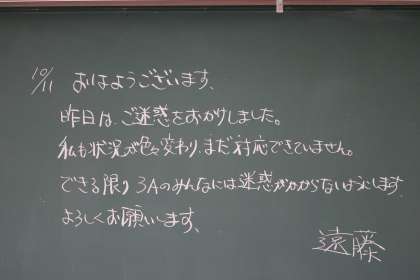 10/11 おはようございます、
昨日は、ご迷惑をおかけしました。
私も状況が色々変わり、まだ対応できていません。
できる限り3Aのみんなには迷惑がかからないようにします。
よろしくお願いします、
遠藤